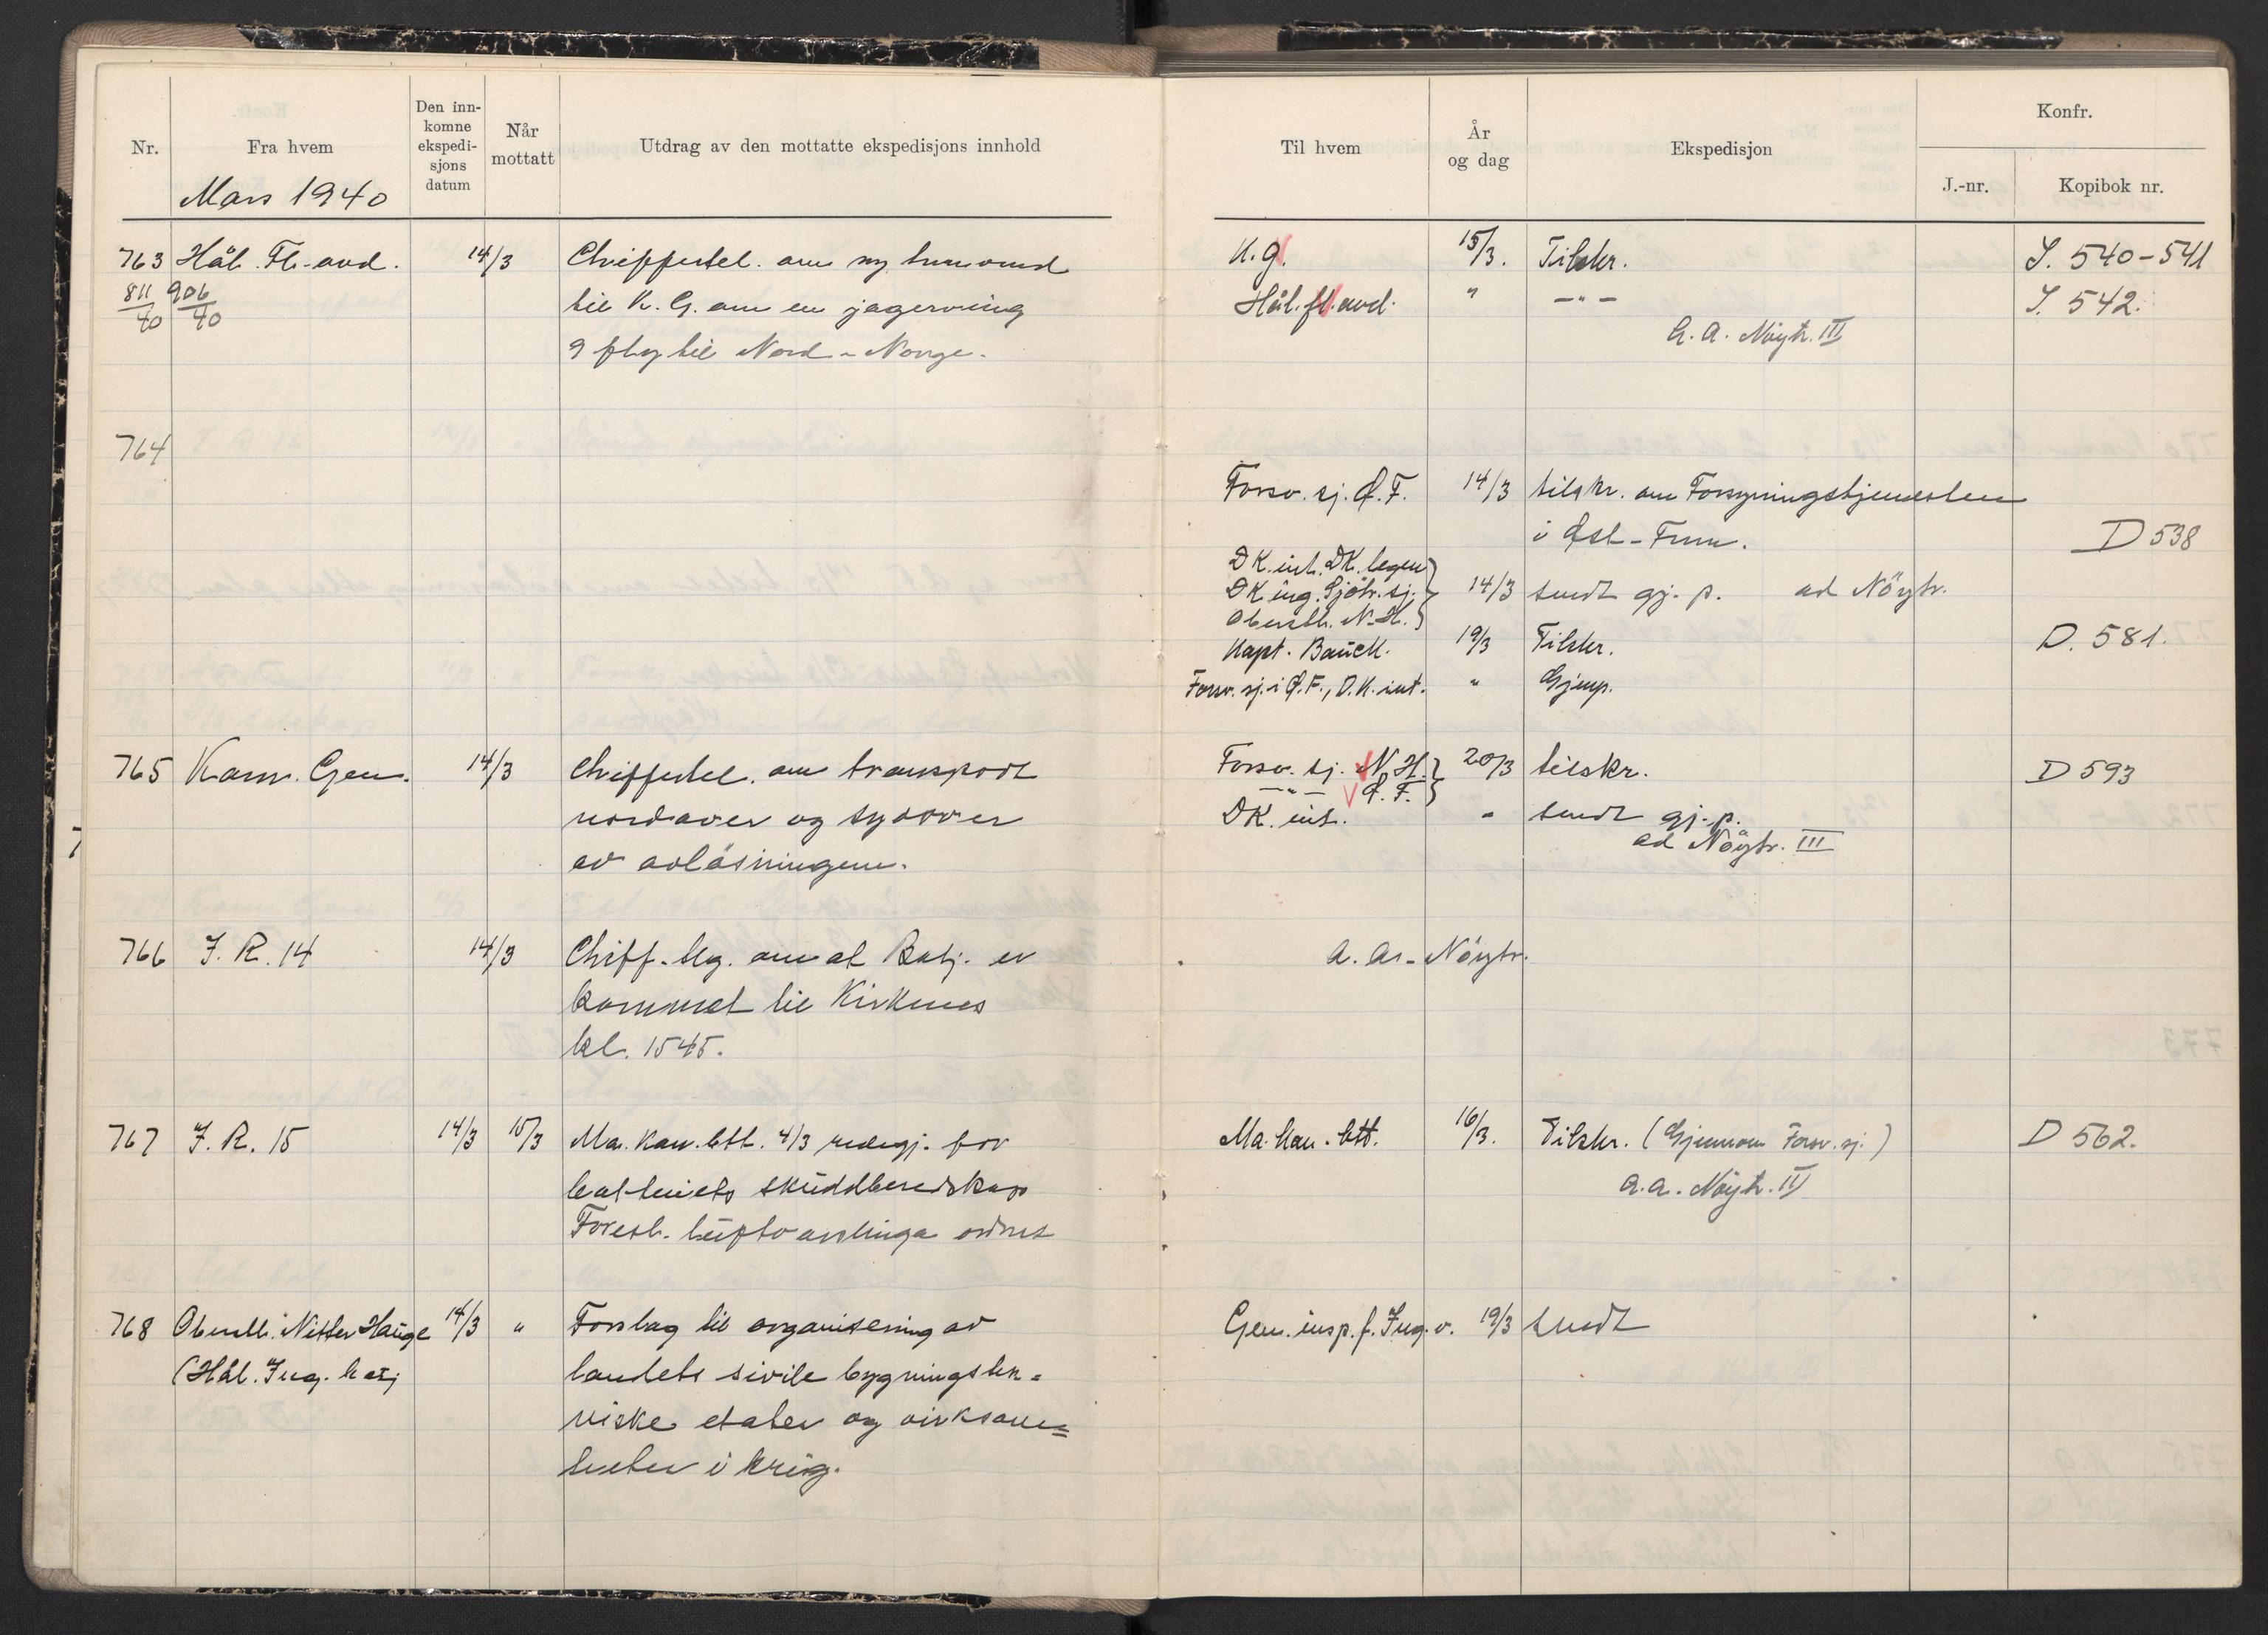 Nr.
Fra hvem
Den inn-
komne
ekspedi-
sjons
datum
Når
mottatt
Utdrag av den mottatte ekspedisjons innhold
Mars 1940
763 Hål. Fl-avd. 14/3 Chiffertel. om
811/40 906/40 til K. G. om en jagerving
9 fly til Nord-Norge.
764
765 Kom. Gen. 14/3 Chiffertel. om transport
nordover og sydover
av avlösningene.
766 I. R. 14 14/3 Chiff. tlg. om at Batj. er
kommet til Kirkenes
kl. 1545.
767 I. R. 15 14/3 15/3 Ma. kan. btt. 4/3 redegj. for
batteriets skuddberedskap
Foresl. ordnet
768 Oberstl. Nitter Hauge 14/3 " Forslag til organisering av
(Hål. Ing. batj landets sivile bygningstek-
niske etater og virksom=
heter i krig.
Til hvem
År
og dag
Ekspedisjon
Konfr.
J.-nr.
Kopibok nr.
K.G. 15/3. Tilskr. S. 540-541
Hål. fl. avd. " —"— S. 542.
a. a. Nöytr. III
Forsv. sj. Ø. F. 14/3 tilskr. om Forsyningstjenesten
i Øst-Finnm. D 538
DK. int. DK. legen
DK ing. Sjötr. sj. 14/3 sendt gj. p. ad Nöytr.
Oberstl. N. H.
Kapt. Bauck. 19/3 Tilskr. D. 581.
Forsv. sj. i Ø. F., D.K. int. " Gjenp.
Forsv. sj. N. H. 20/3 tilskr. D 593
—"— Ø. F.
DK. int. " sendt gj. p.
ad Nöytr. III
a. a. Nöytr.
Ma. kan. btt. 16/3. Tilskr. (Gjennom Forsv. sj.) D 562.
a. a. Nöytr. III
Gen. insp. f. Ing. v. 19/3 sendt